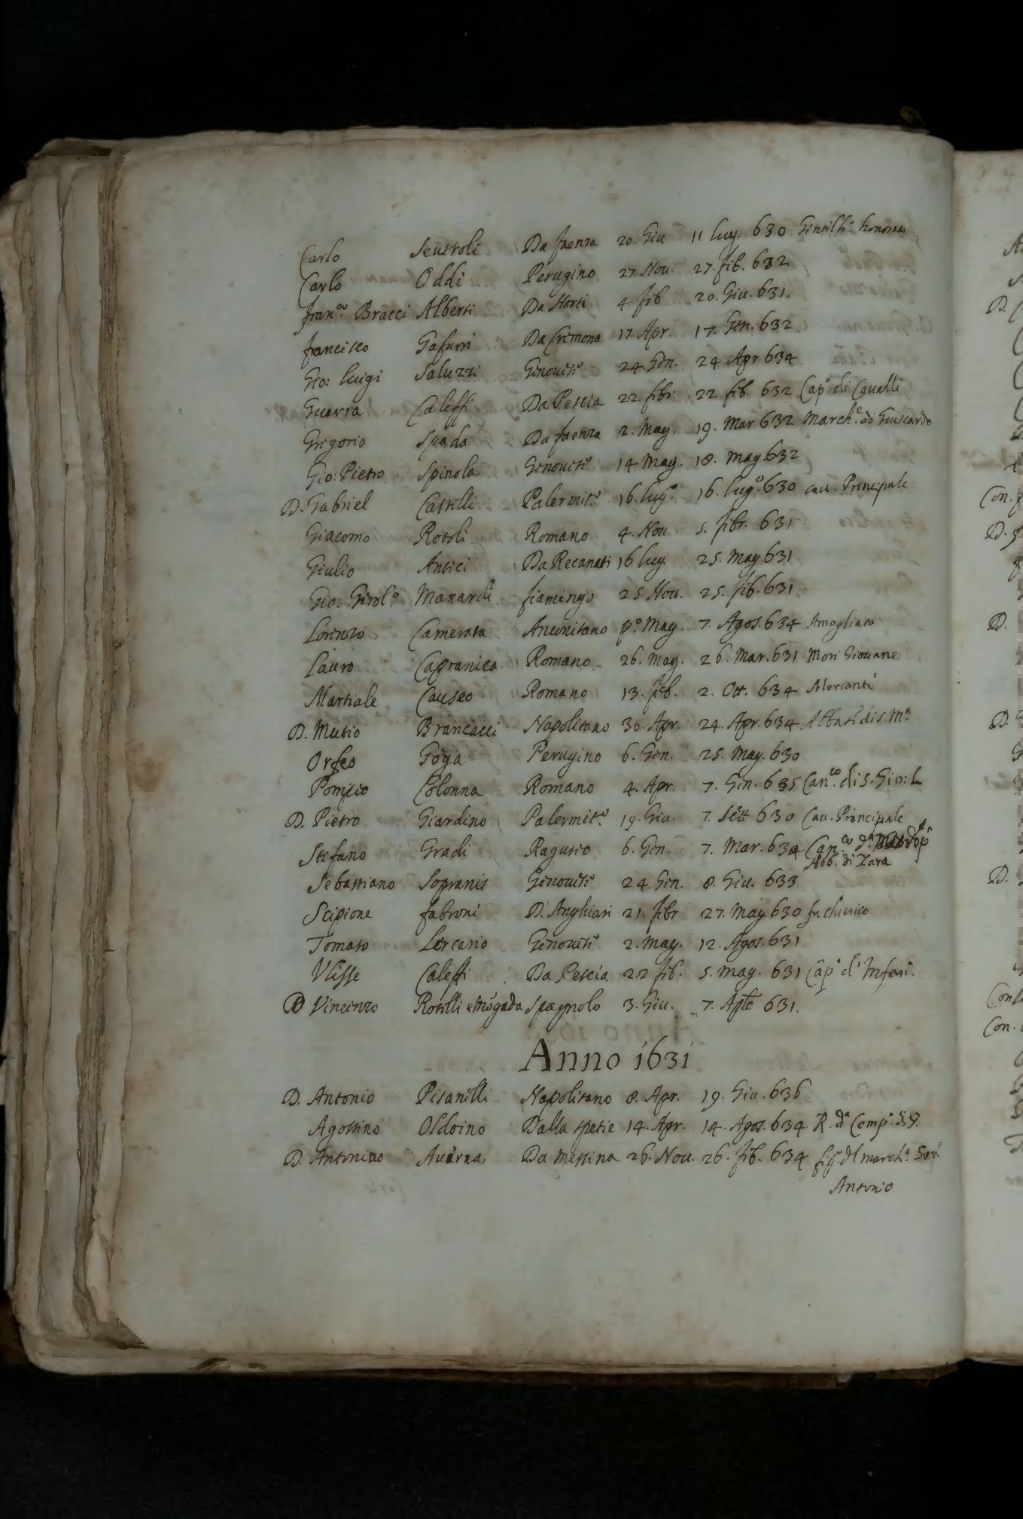 Carlo Seuaroli Da faenza 20. Giu 11 lug. 630 Gentilh.º honorar
Carlo Oddi Perugino 27. Nou. 27. feb. 632
fran.co Bracci Alberti Da Horti 4. feb 20. Giu. 631.
francisco Gafurri Da Cremona 17. Apr. 17. Gen. 632
Gio: luigi Saluzzi Genouese 24. Gen. 24. Apr. 634
Guerra Caleffi Da Pescia 22. febr. 22 feb 632 Cap.º di Caualli
Gregorio Spada Da faenza 2. May. 19. Mar 632 March.e di Guiscardo
Gio: Pietro Spinola Genouese 14 May. 18. may. 632
D. Gabriel Castilli Palermit.º 16. lug.º 16. lug.º 630 cau. Principale
Giacomo Rotoli Romano 4. Nou 5. febr. 631
Giulio Antici Da Recanati 16 lug. 25. May. 631
Gio: Girol.º Manardi fiamingo 25. Nou. 25. feb. 631
Lorenzo Camerata Anconitano p.º May. 7. Agos. 634 Amogliato
Lauro Capranica Romano 26. may. 26. Mar. 631 Mori Giouane
Martiale Causeo Romano 13. feb. 2. Ott. 634 Mercante
D. Mutio Brancacci Napolitano 30. Apr. 24. Apr. 634 Abbate di s. M.ª
Orfeo Goga Perugino 6. Gen. 25. May. 630
Pompeo Colonna Romano 4. Apr. 7. Gen. 635 Can.co di S. Gio: L
D. Pietro Giardino Palermit.º 19. Giu. 7. Sett 630 Cau. Principale
Stefano Gradi Raguseo 6. Gen. 7. Mar. 634 Can.co d.ª
Abb. di Zara
Sebastiano Sopranis Genouese 24. Gen. 8. Giu. 633
Scipione fabroni D. Anghiari 21. febr 27. May. 630 fu chierico
Tomaso Lercario Genouese 2. may. 12. Agos. 631
Vlisse Caleffi Da Pescia 22. feb. 5. may. 631 Cap.º d' Infan.
D Vincenzo Rotilli Spagnolo 3. Giu. 7. 631.
Anno 1631
D. Antonio Pisanilli Napolitano 8. Apr. 19. Giu. 636
Agostino Oldoino Dalla spetie 14. Apr. 14. Agos. 634 R. d.ª Comp.ª di G.
D. Antonino Auerna Da messina 26. Nou. 26. feb. 634 del march.e
Antonio